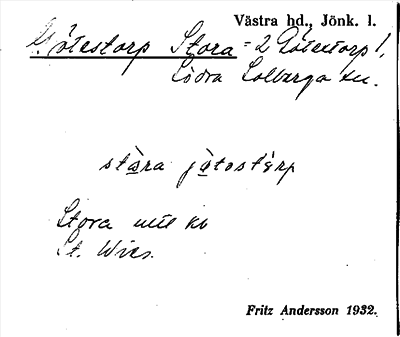 Västra hd., Jönk. l.
Götestorp Stora = 2 Götestorp l.
Södra Solberga sn.
stàra jàtostàrp
Stora
St.
Fritz Andersson 1932.